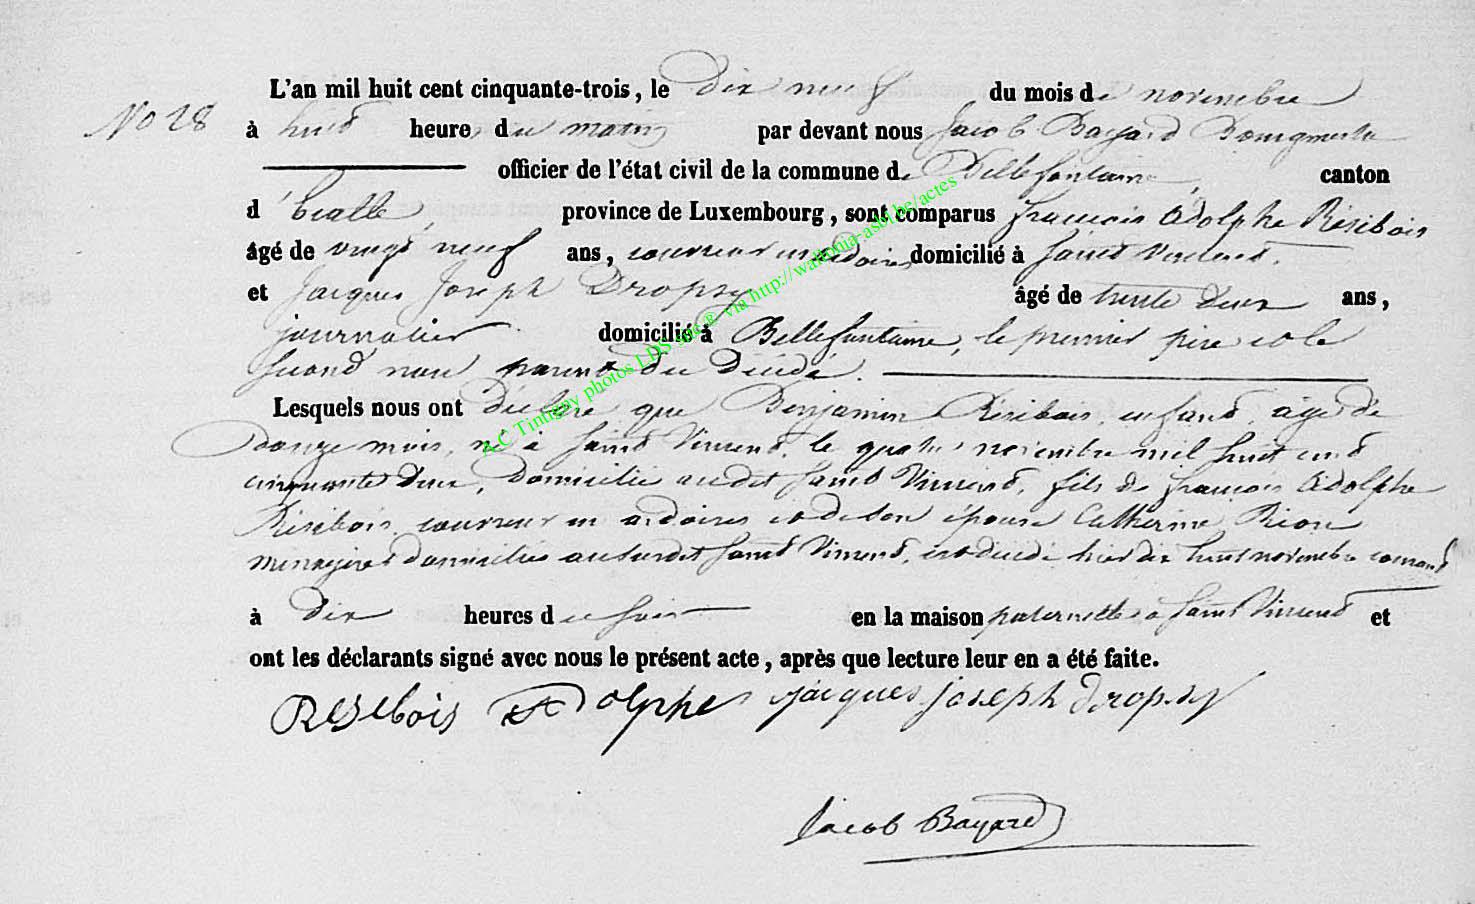 No 28
L'an mil huit cent cinquante-trois, le dix neuf du mois de novembre
à huit heures du matin par devant nous Jacob Bayard Bourgmestre
officier de l'état civil de la commune de Bellefontaine, canton
d'Etalle, province de Luxembourg, sont comparus françois Adolphe Résibois
âgé de vingt neuf ans, couvreur en ardoises domicilié à Saint Vincent,
et Jacques Joseph Dropsy âgé de trente deux ans,
journalier domicilié à Bellefontaine, le premier père et le
second non parent du décédé.
Lesquels nous ont déclaré que Benjamin Résibois, enfant, âgé de
douze mois, né à Saint Vincent, le quatre novembre mil huit cent
cinquante deux, domicilié audit Saint Vincent, fils de françois Adolphe
Résibois couvreur en ardoises et de son épouse Catherine
ménagère domiciliés au susdit Saint Vincent, est décédé hier dix huit novembre courant
à dix heures du soir en la maison paternelle à Saint Vincent et
ont les déclarants signé avec nous le présent acte, après que lecture leur en a été faite.
Resebois Adolphe jacques joseph dropsy
Jacob Bayard
A.C Tintigny photos LDS sur ® via http://wallonia-asbl.be/actes